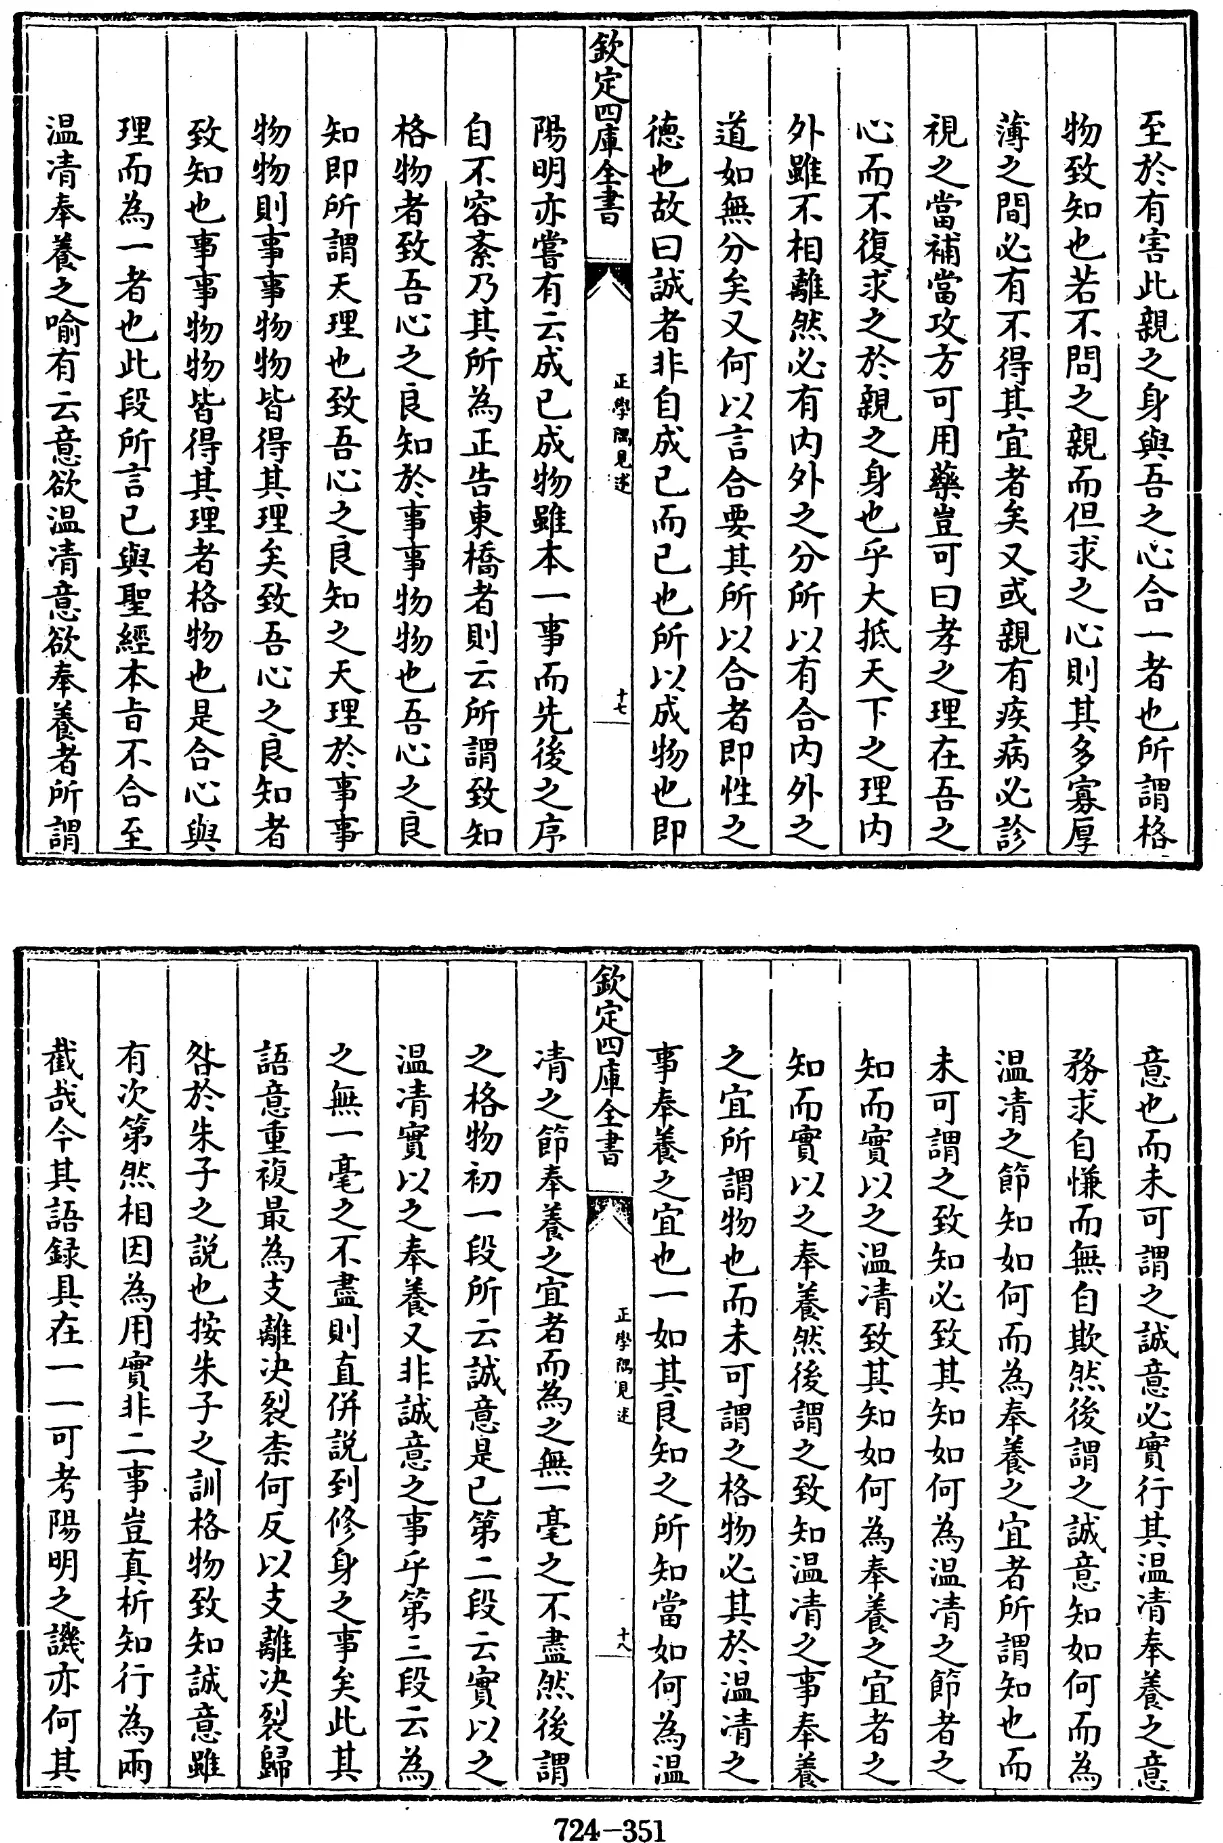 至於有害此親之身與吾之心合一者也所謂格
物致知也若不問之親而但求之心則其多寡厚
薄之間必有不得其宜者矣又或親有疾病必診
視之當補當攻方可用藥豈可曰孝之理在吾之
心而不復求之於親之身也乎大抵天下之理内
外雖不相離然必有内外之分所以有合内外之
道如無分矣又何以言合要其所以合者即性之
德也故曰誠者非自成己而已也所以成物也即
欽定四庫全書
正學隅見述
十七
陽明亦嘗有云成己成物雖本一事而先後之序
自不容紊乃其所為正告東橋者則云所謂致知
格物者致吾心之良知於事事物物也吾心之良
知即所謂天理也致吾心之良知之天理於事事
物物則事事物物皆得其理矣致吾心之良知者
致知也事事物物皆得其理者格物也是合心與
理而為一者也此段所言已與聖經本旨不合至
温凊奉養之喻有云意欲温凊意欲奉養者所謂
意也而未可謂之誠意必實行其温凊奉養之意
務求自慊而無自欺然後謂之誠意知如何而為
温凊之節知如何而為奉養之宜者所謂知也而
未可謂之致知必致其知如何為温凊之節者之
知而實以之温凊致其知如何為奉養之宜者之
知而實以之奉養然後謂之致知温凊之事奉養
之宜所謂物也而未可謂之格物必其於温凊之
事奉養之宜也一如其良知之所知當如何為温
欽定四庫全書
正學隅見述
十八
凊之節奉養之宜者而為之無一毫之不盡然後謂
之格物初一段所云誠意是已第二段云實以之
温凊實以之奉養又非誠意之事乎第三段云為
之無一毫之不盡則直併説到修身之事矣此其
語意重複最為支離决裂柰何反以支離决裂歸
咎於朱子之説也按朱子之訓格物致知誠意雖
有次第然相因為用實非二事豈真析知行為兩
截哉今其語録具在一一可考陽明之譏亦何其
724-351